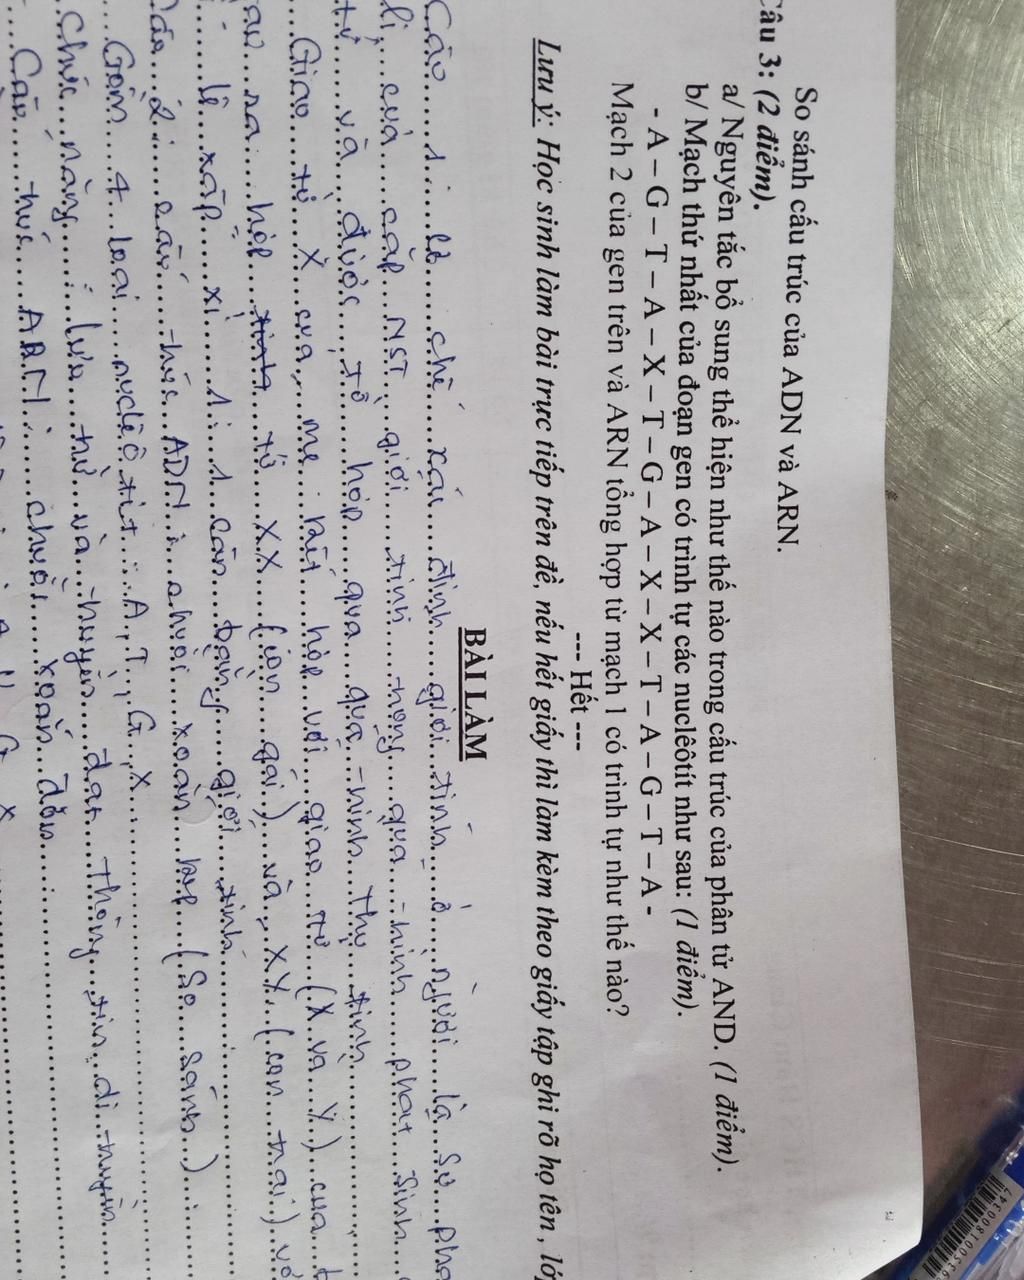 So sánh cấu trúc của ADN và ARN.
Câu 3: (2 điểm).
a/ Nguyên tắc bổ sung thể hiện như thế nào trong cấu trúc của phân tử AND. (1 điểm).
b/ Mạch thứ nhất của đoạn gen có trình tự các nuclêôtít như sau: (1 điểm).
- A – G – T – A – X – T – G – A – X – X – T – A – G – T – A -
Mạch 2 của gen trên và ARN tổng hợp từ mạch 1 có trình tự như thế nào?
--- Hết ---
Lưu ý: Học sinh làm bài trực tiếp trên đề, nếu hết giấy thì làm kèm theo giấy tập ghi rõ họ tên, lớp
BÀI LÀM
Câu 1: Cơ chế xác định giới tính ở người là sự phâ
li của cặp NST giới tính trong quá trình phát sinh
tử và được tổ hợp qua quá trình thụ tinh
Giao tử X của mẹ kết hợp với giao tử (X và Y) của
tạo ra hợp tử XX (con gái) và XY (con trai) vớ
lệ xấp xỉ 1:1 cân bằng giới tính
Câu 2: cấu trúc ADN: chuỗi xoắn kép (So sánh):
Gồm 4 loại nuclêôtit: A, T, G, X
Chức năng: lưu trữ và truyền đạt thông tin di truyền
Cấu trúc ARN: chuỗi xoắn đơn